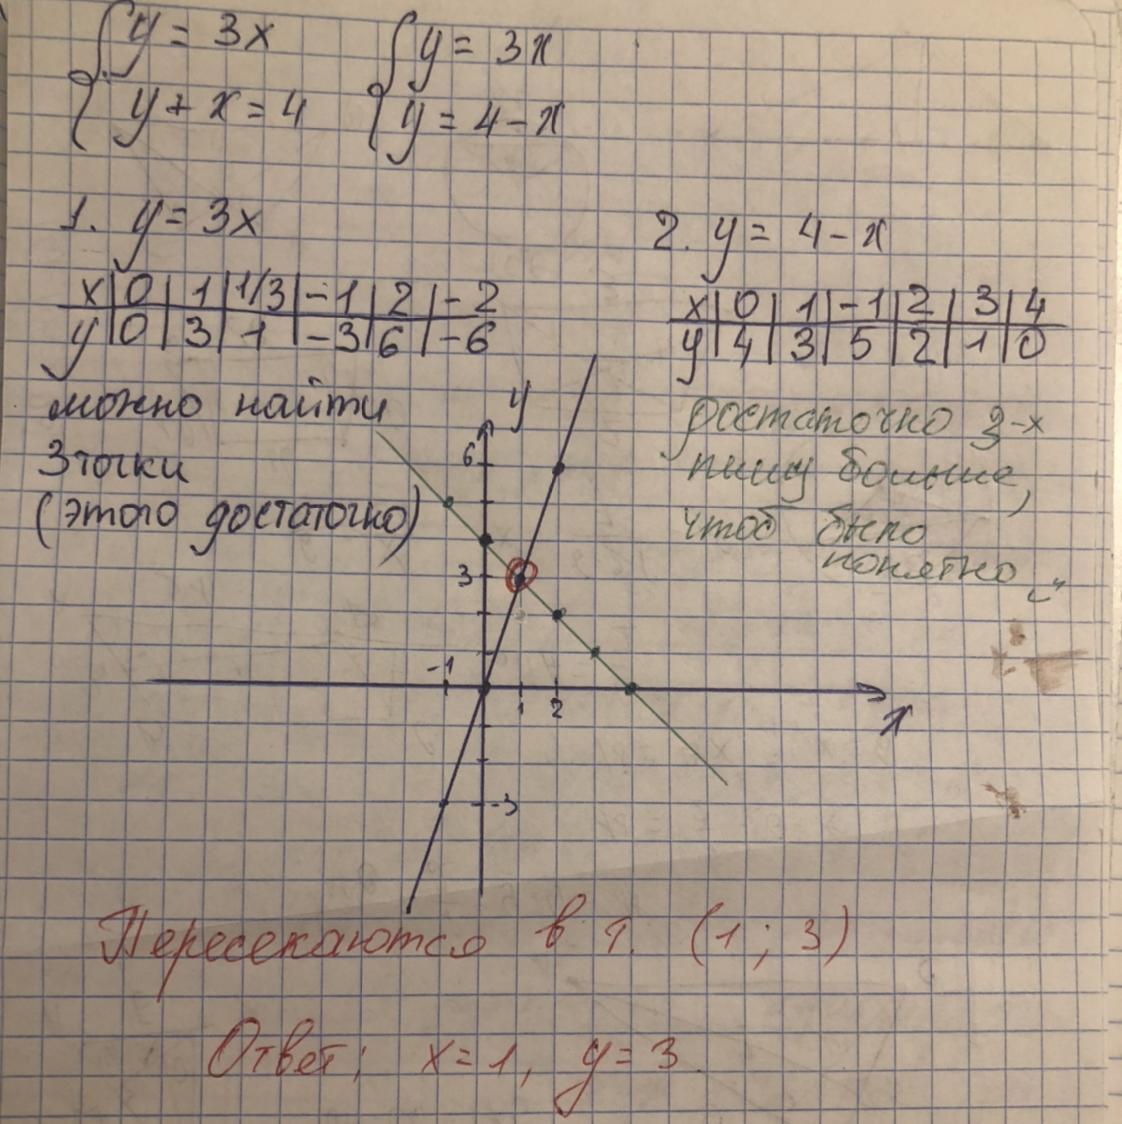 y = 3x
y + x = 4
y = 3x
y = 4 - x
1. y = 3x
x | 0 | 1 | 1/3 | -1 | 2 | -2
y | 0 | 3 | 1 | -3 | 6 | -6
можно найти
3 точки
(этого достаточно)
2. y = 4 - x
x | 0 | 1 | -1 | 2 | 3 | 4
y | 4 | 3 | 5 | 2 | 1 | 0
достаточно 3-х
пишу больше,
чтоб было
понятно
y
6
3
-1
1 2
x
-3
Пересекаются в т. (1; 3)
Ответ: x = 1, y = 3